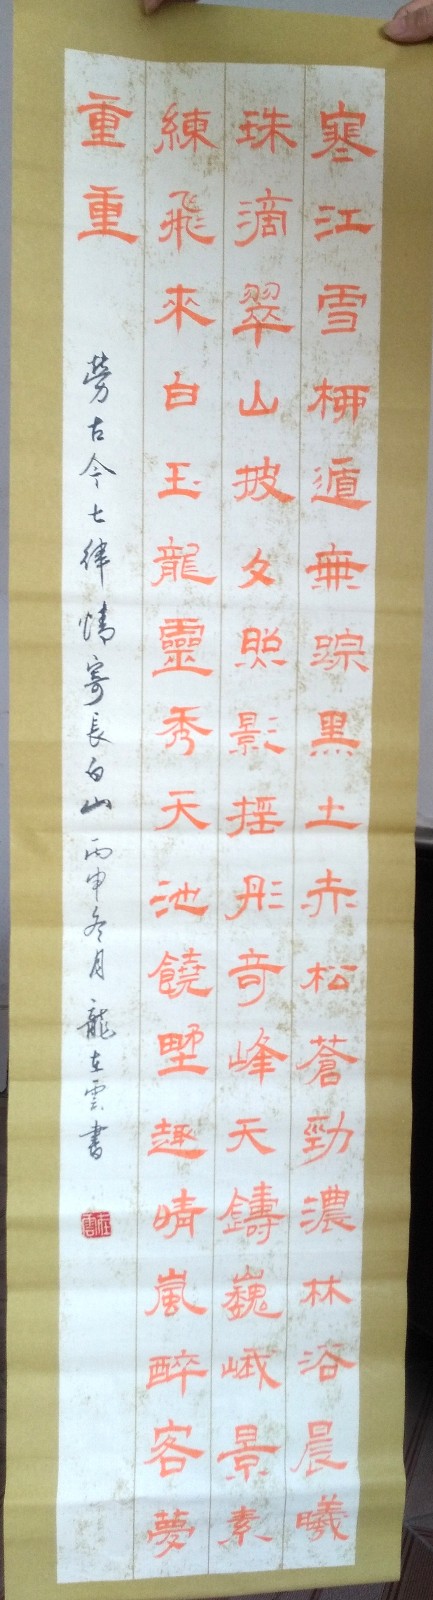 寒江雪柳遁無踪黑土赤松蒼勁濃林浴晨曦
珠滴翠山披夕照影揺彤奇峰天鑄巍峨景素
練飛來白玉龍靈秀天池饒野趣晴嵐醉客夢
重重
勞古今七律情寄長白山丙申冬月龍在雲書